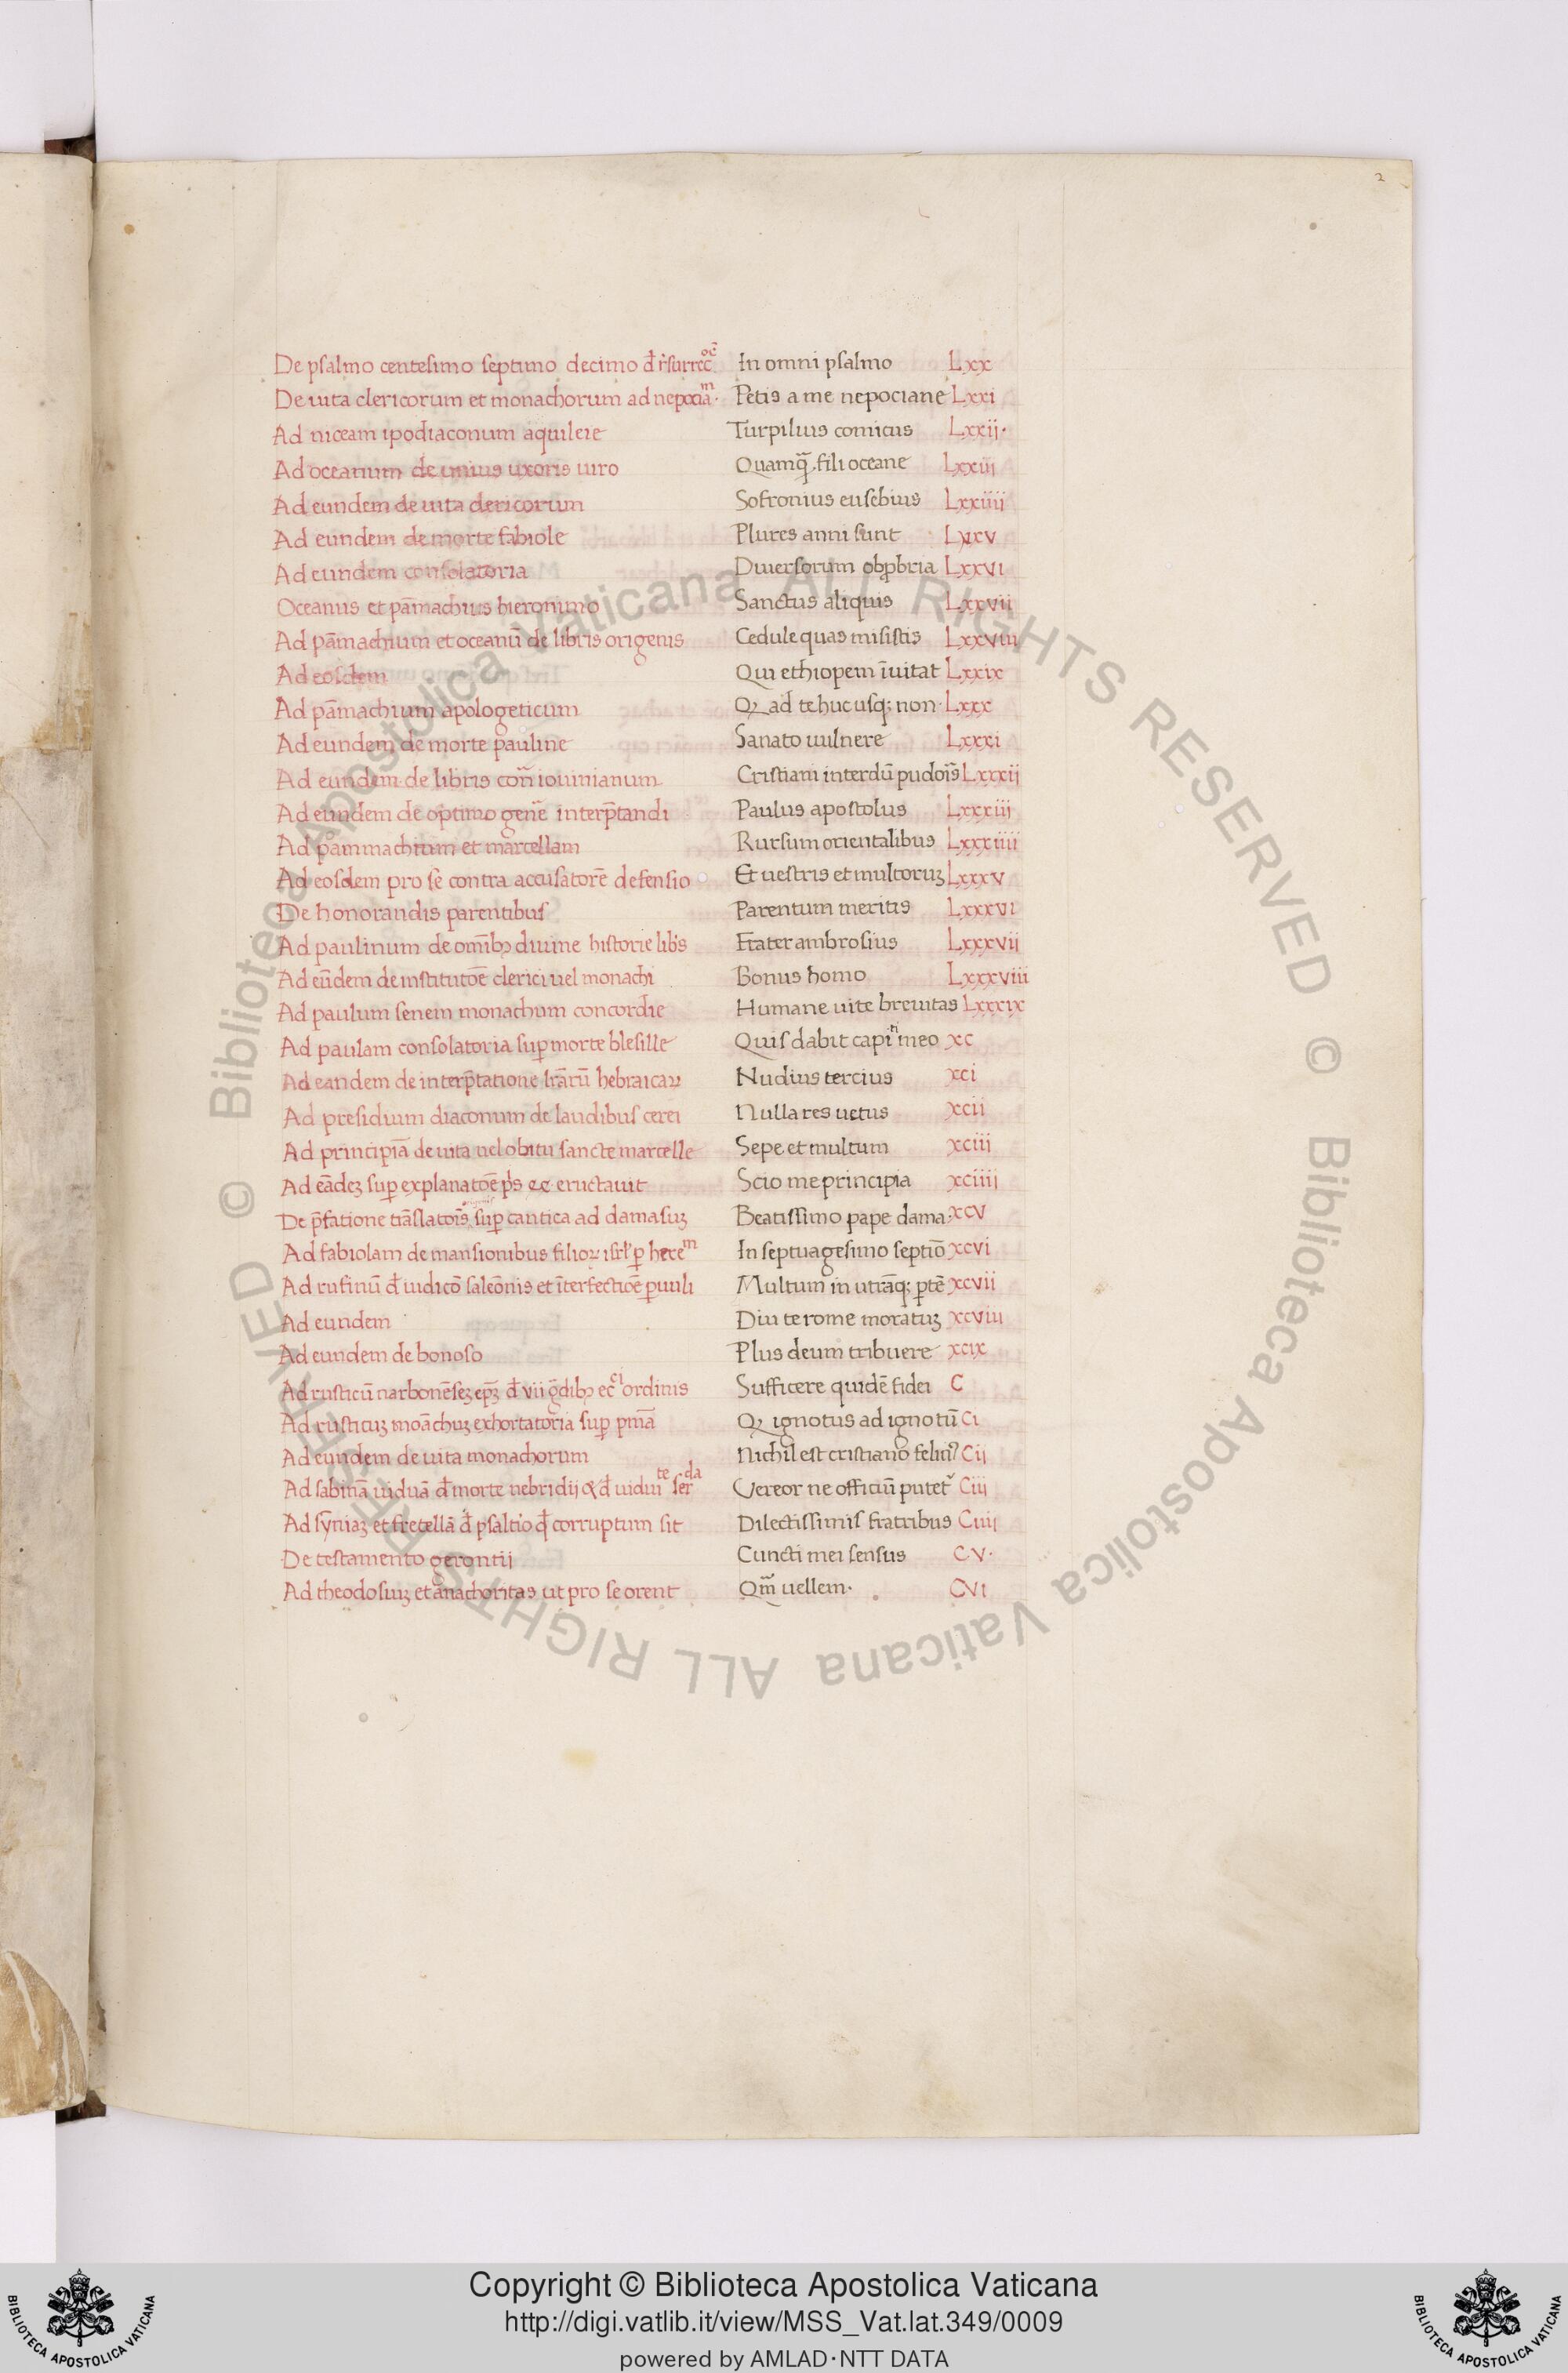 2
De psalmo centesimo septimo decimo đ r̃surrecōc̃ In omni psalmo Lxx
De uita clericorum et monachorum ad nepociam. Petis a me nepociane Lxxi
Ad niceam ipodiaconum aquileie Turpilius comicus Lxxij.
Ad oceanum de unius uxoris uiro Quamq̃ fili oceane Lxxiij
Ad eundem de uita clericorum Sofronius eusebius Lxxiiij
Ad eundem de morte fabiole Plures anni sunt Lxxv
Ad eundem consolatoria Diuersorum obꝓbria Lxxvi
Oceanus et pāmachius hieronimo Sanctus aliquis Lxxvii
Ad pāmachium et oceanū de libris origenis Cedule quas misistis Lxxviii
Ad eosdem Qui ethiopem īuitat Lxxix
Ad pāmachium apologeticum Qꝫ ad te huc usqꝫ non Lxxx
Ad eundem de morte pauline Sanato uulnere Lxxxi
Ad eundem de libris cont̄ iouinianum Cristiani interdū pudoīs Lxxxij
Ad eundem de optimo gene̅ interp̄tandi Paulus apostolus Lxxxiij
Ad pammachium et marcellam Rursum orientalibus Lxxxiiii
Ad eosdem pro se contra accusatorē defensio Et uestris et multoruꝫ Lxxxv
De honorandis parentibus Parentum meritis Lxxxvi
Ad paulinum de om̄ibꝫ diuine historie lib̃s Frater ambrosius Lxxxvij
Ad eūdem de institutōe clerici uel monachi Bonus homo Lxxxviii
Ad paulum senem monachum concordie Humane uite breuitas Lxxxix
Ad paulam consolatoria suꝑ morte blesille Quis dabit capiti meo xc
Ad eandem de interp̄tatione lr̄arū hebraicaꝝ Nudius tercius xci
Ad presidium diaconum de laudibus cerei Nulla res uetus xcii
Ad principiā de uita uel obitu sancte marcelle Sepe et multum xciii
Ad eādeꝫ suꝑ explanatōe p̄s eructauit Scio me principia xciiij
De p̄fatione trāslatoīs suꝑ cantica ad damasuꝫ Beatissimo pape dama. xcv
Ad fabiolam de mansionibus filioꝝ isrł ꝑ herem In septuagesimo septiō xcvi
Ad rufinū đ iudicō saleōnis et īterfectiōe ꝑuuli Multum in utrāqꝫ ꝑtē xcvii
Ad eundem Diu te rome moratuꝫ xcviii
Ad eundem de bonoso Plus deum tribuere xcix
Ad rusticū narbonēseꝫ ep̄ꝫ đ vii g̃dibꝫ ec̃ci ordinis Sufficere quidē fidei C
Ad rusticuꝫ moāchuꝫ exhortatoria suꝑ pm̄ā Qꝫ ignotus ad ignotū Ci
Ad eundem de uita monachorum Nichil est cristiano feliciꝰ Cij
Ad sabinā uiduā đ morte nebridij & đ uiduite serda Vereor ne officiū putet᷑ Ciij
Ad syniaꝫ et fretellā đ psaltio qđ corruptum sit Dilectissimis fratribus Ciiij
De testamento gerontij Cuncti mei sensus C.V.
Ad theodosiuꝫ et anachoritas ut pro se orent Qm̄ uellem. CVI
© Biblioteca Apostolica Vaticana ALL RIGHTS RESERVED © Biblioteca Apostolica Vaticana ALL RIGHTS RESERVED
Copyright © Biblioteca Apostolica Vaticana
http://digi.vatlib.it/view/MSS_Vat.lat.349/0009
powered by AMLAD·NTT DATA
BIBLIOTECA APOSTOLICA VATICANA
BIBLIOTECA APOSTOLICA VATICANA